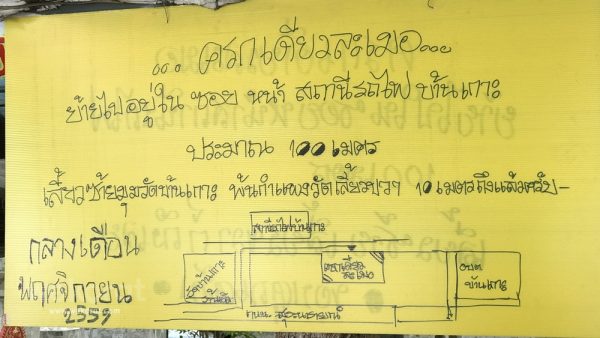 ... ครกเดียวละเมอ...
ย้ายไปอยู่ใน ซอย หน้า สถานีรถไฟ บ้านเกาะ
ประมาณ 100 เมตร
เลี้ยวซ้ายมุมวัดบ้านเกาะ พ้นกำแพงวัดเลี้ยวขวา 10 เมตรถึงแล้วครับ-
กลางเดือน
พฤศจิกายน
2559
สถานีรถไฟบ้านเกาะ
วัดบ้านเกาะ
ครกเดียว
ละเมอ
อบต
บ้านเกาะ
ถนน สุระนารายณ์